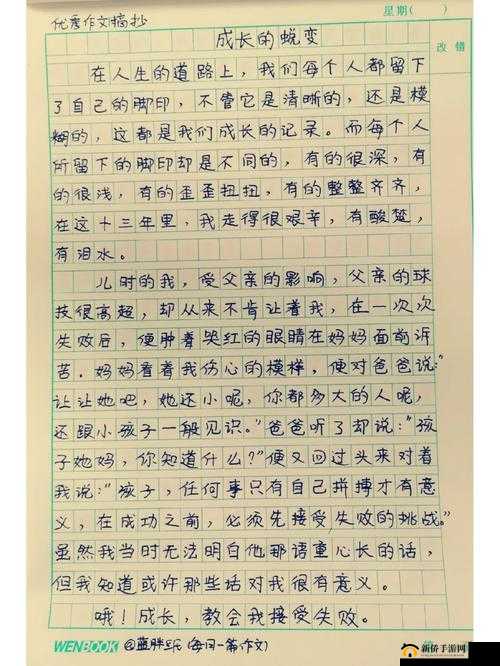 优秀作文摘抄
星期( )
成长的蜕变
改错
在人生的道路上，我们每个人都留下
了自己的脚印，不管它是清晰的，还是模
糊的，这都是我们成长的记录。而每个人
所留下的脚印却是不同的，有的很深，有
的很浅，有的歪歪扭扭，有的整整齐齐，
在这十三年里，我走得很艰辛，有酸楚，
有泪水。
儿时的我，受父亲的影响，父亲的球
技很高超，却从来不肯让着我，在一次次
失败后，便肿着哭红的眼睛在妈妈面前诉
苦．妈妈看着我伤心的模样，便对爸爸说："
让让她吧，她还小呢，你都多大的人呢，
还跟小孩子一般见识。"爸爸听了却说："孩
子她妈，你知道什么？"便又回过头来对着
我说："孩子，任何事只有自己拼搏才有意
义，在成功之前，必须先接受失败的挑战。"
虽然我当时无法明白他那语重心长的话，
但我知道或许那些话对我很有意义。
哦！成长，教会我接受失败。
WENBOOK @蓝胖 (每日一篇作文)
新侨手游网